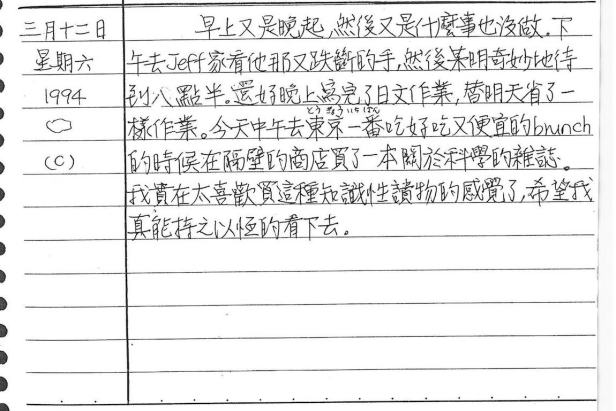 三月十二日
星期六
1994
(C)
早上又是晚起,然後又是什麼事也沒做。下
午去Jeff家看他那又跌斷的手,然後莫明奇妙地待
到八點半。還好晚上寫完了日文作業,替明天省了一
とうきょういちばん
樣作業。今天中午去東京一番吃好吃又便宜的brunch
的時候在隔壁的商店買了一本關於科學的雜誌。
我實在太喜歡買這種知識性讀物的感覺了,希望我
真能持之以恆的看下去。